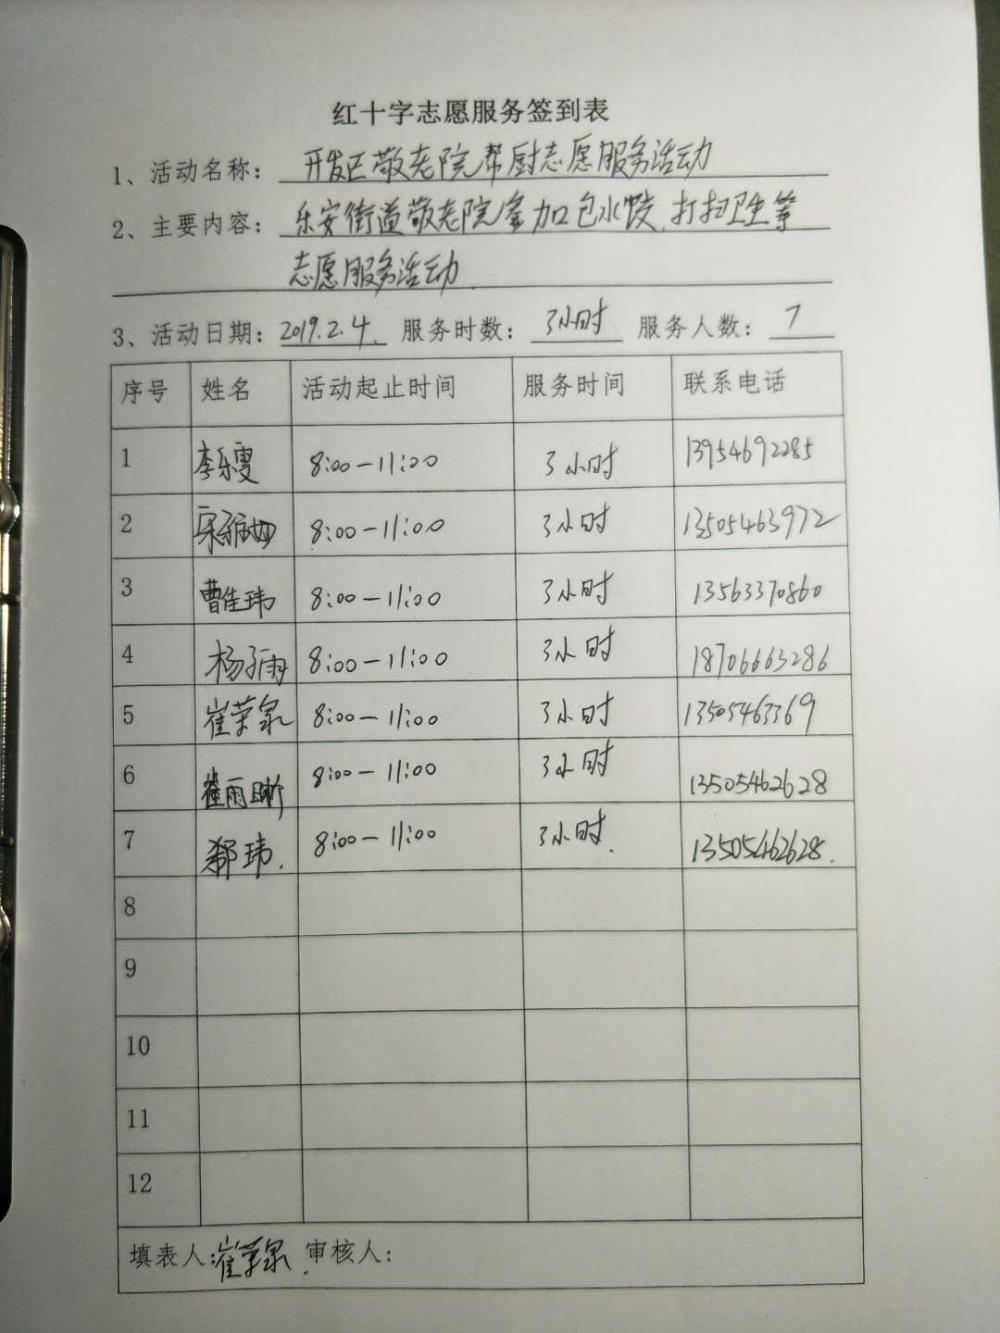 红十字志愿服务签到表
1、活动名称：开发区敬老院帮厨志愿服务活动
2、主要内容：乐安街道敬老院参加包水饺、打扫卫生等
志愿服务活动
3、活动日期：2019.2.4. 服务时数：3小时 服务人数：7
序号 姓名 活动起止时间 服务时间 联系电话
1 李乐雯 8:00-11:00 3小时 13954692285
2 8:00-11:00 3小时 13505463972
3 曹佳玮 8:00-11:00 3小时 13563370860
4 杨子雨 8:00-11:00 3小时 18706663286
5 崔荣泉 8:00-11:00 3小时 13505463369
6 崔雨晰 8:00-11:00 3小时 13505462628
7 郗玮. 8:00-11:00 3小时. 13505462628.
8
9
10
11
12
填表人:崔荣泉. 审核人: